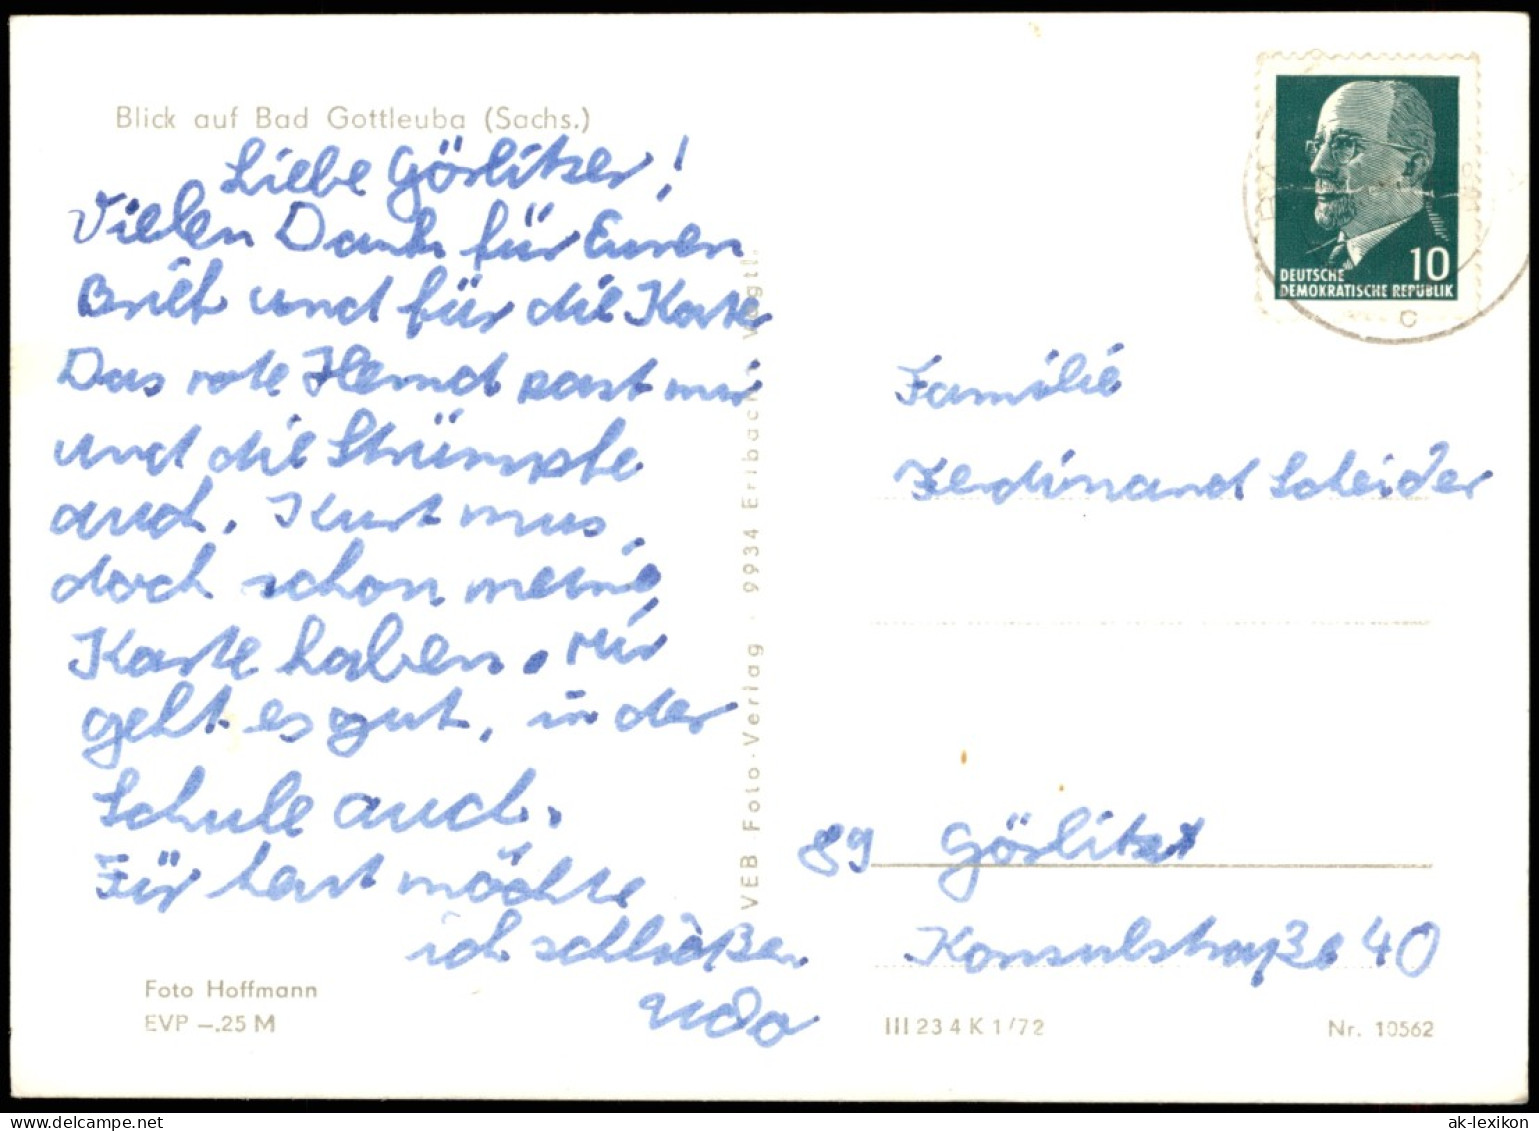 Blick auf Bad Gottleuba (Sachs.)
Liebe Görlitzer!
Vielen Dank für Euren
Brief und für die Karte
Das rote Hemd past mir
und die Strümpfe
auch. Kurt mus,
doch schon meine
Karte haben. Mir
geht es gut, in der
Schule auch.
Für heut möchte
ich schließen
Udo
Foto Hoffmann
EVP –.25 M
VEB Foto-Verlag · 9934 Erlbach Vogtl.
DEUTSCHE
DEMOKRATISCHE REPUBLIK
10
c
Familie
Ferdinand Scheider
89 Görlitz
Konsulstraße 40
III 23 4 K 1/72
Nr. 10562
ak-lexikon